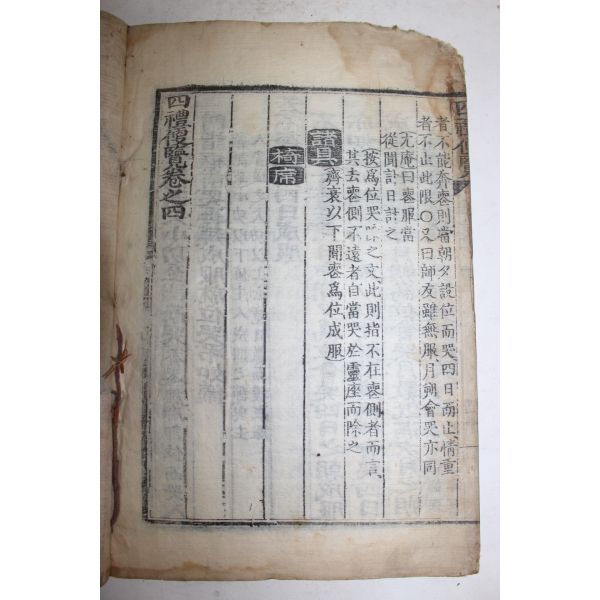 四禮便覽
者不能奔喪則當朝夕設位而哭四日而止情重
者不止此限○又曰師友雖無服月朔會哭亦同
尤庵曰喪服當
從聞訃日計之
按爲位哭除之文此則指不在喪側者而言
其去喪側不遠者自當哭於靈座而除之
諸具
齊衰以下聞喪爲位成服
椅席
四禮便覽卷之四